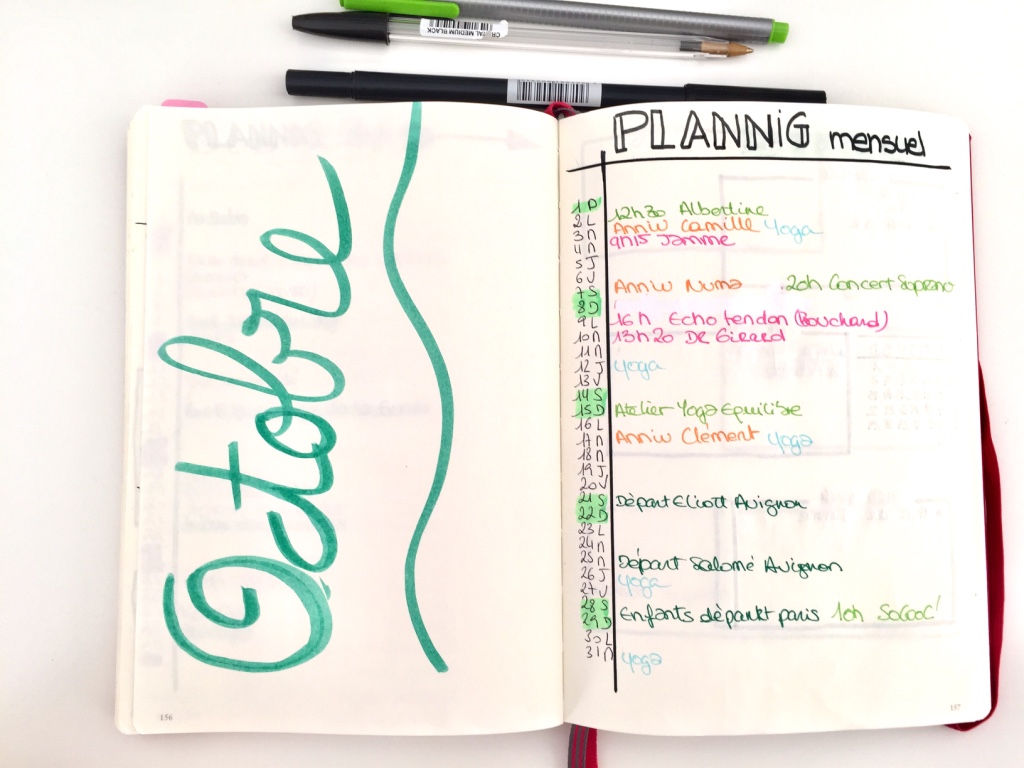 CRISTAL MEDIUM BLACK
Octobre
PLANNiG mensuel
1 D 12h30 Albertine
2 L Anniv Camille yoga
3 M 9h15 Jamme
4 M
5 J
6 V
7 S Anniv Numa 20h Concert Soprano
8 D
9 L 16h Echo tendon (Bouchard)
10 M 13h20 DR Girard
11 M
12 J yoga
13 V
14 S
15 D Atelier Yoga Equilibre
16 L
17 M Anniv Clement yoga
18 M
19 J
20 V
21 S Départ Eliott Avignon
22 D
23 L
24 M
25 M Départ Salomé Avignon
26 J yoga
27 V
28 S
29 D Enfants départ paris 10h
30 L
31 M yoga
156
157